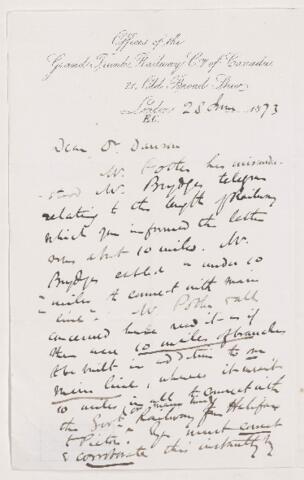 Offices of the
Grand Trunk Railway Co. of Canada
21, Old Broad Street
London 28 1873
E.C.
Dear Dr Dawson
Mr. Potter has misunder-
stood Mr. Brydges telegram
relating to the length of Railway
which you informed the latter
was about 10 miles. Mr.
Brydges cabled "under 10
"miles to connect with main
line". Mr Potter
read it as if
there were 10 miles of branches
to be built in addition to one
Main line, whereas it meant
10 miles in all to connect with
the Govt. Railway from Halifax
to Pictou. You must correct
& corroborate this instantly by